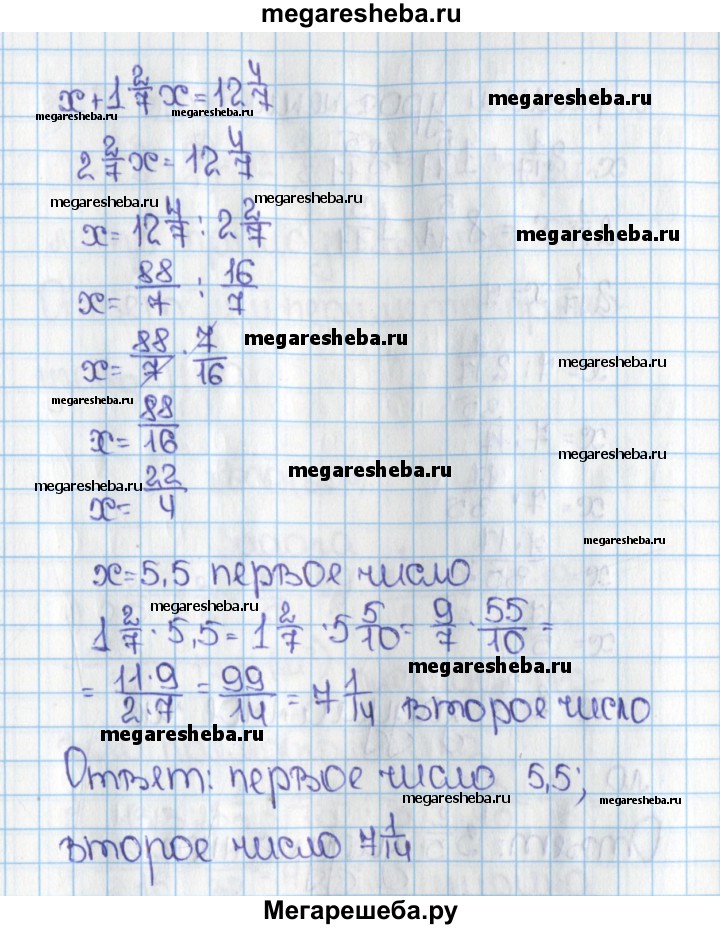 megaresheba.ru
x+1 2/7 x=12 4/7
megaresheba.ru
megaresheba.ru
megaresheba.ru
2 2/7 x=12 4/7
megaresheba.ru
megaresheba.ru
x=12 4/7 : 2 2/7
megaresheba.ru
x= 88/7 : 16/7
x= 88/7 · 7/16
megaresheba.ru
megaresheba.ru
megaresheba.ru
x= 88/16
megaresheba.ru
megaresheba.ru
megaresheba.ru
x= 22/4
megaresheba.ru
x=5,5 первое число
megaresheba.ru
1 2/7 · 5,5= 1 2/7 · 5 5/10= 9/7 · 55/10 =
megaresheba.ru
= 11·9/2·7 = 99/14 = 7 1/14 второе число
megaresheba.ru
Ответ: первое число 5,5;
megaresheba.ru
megaresheba.ru
второе число 7 1/14
megaresheba.ru
Мегарешеба.ру